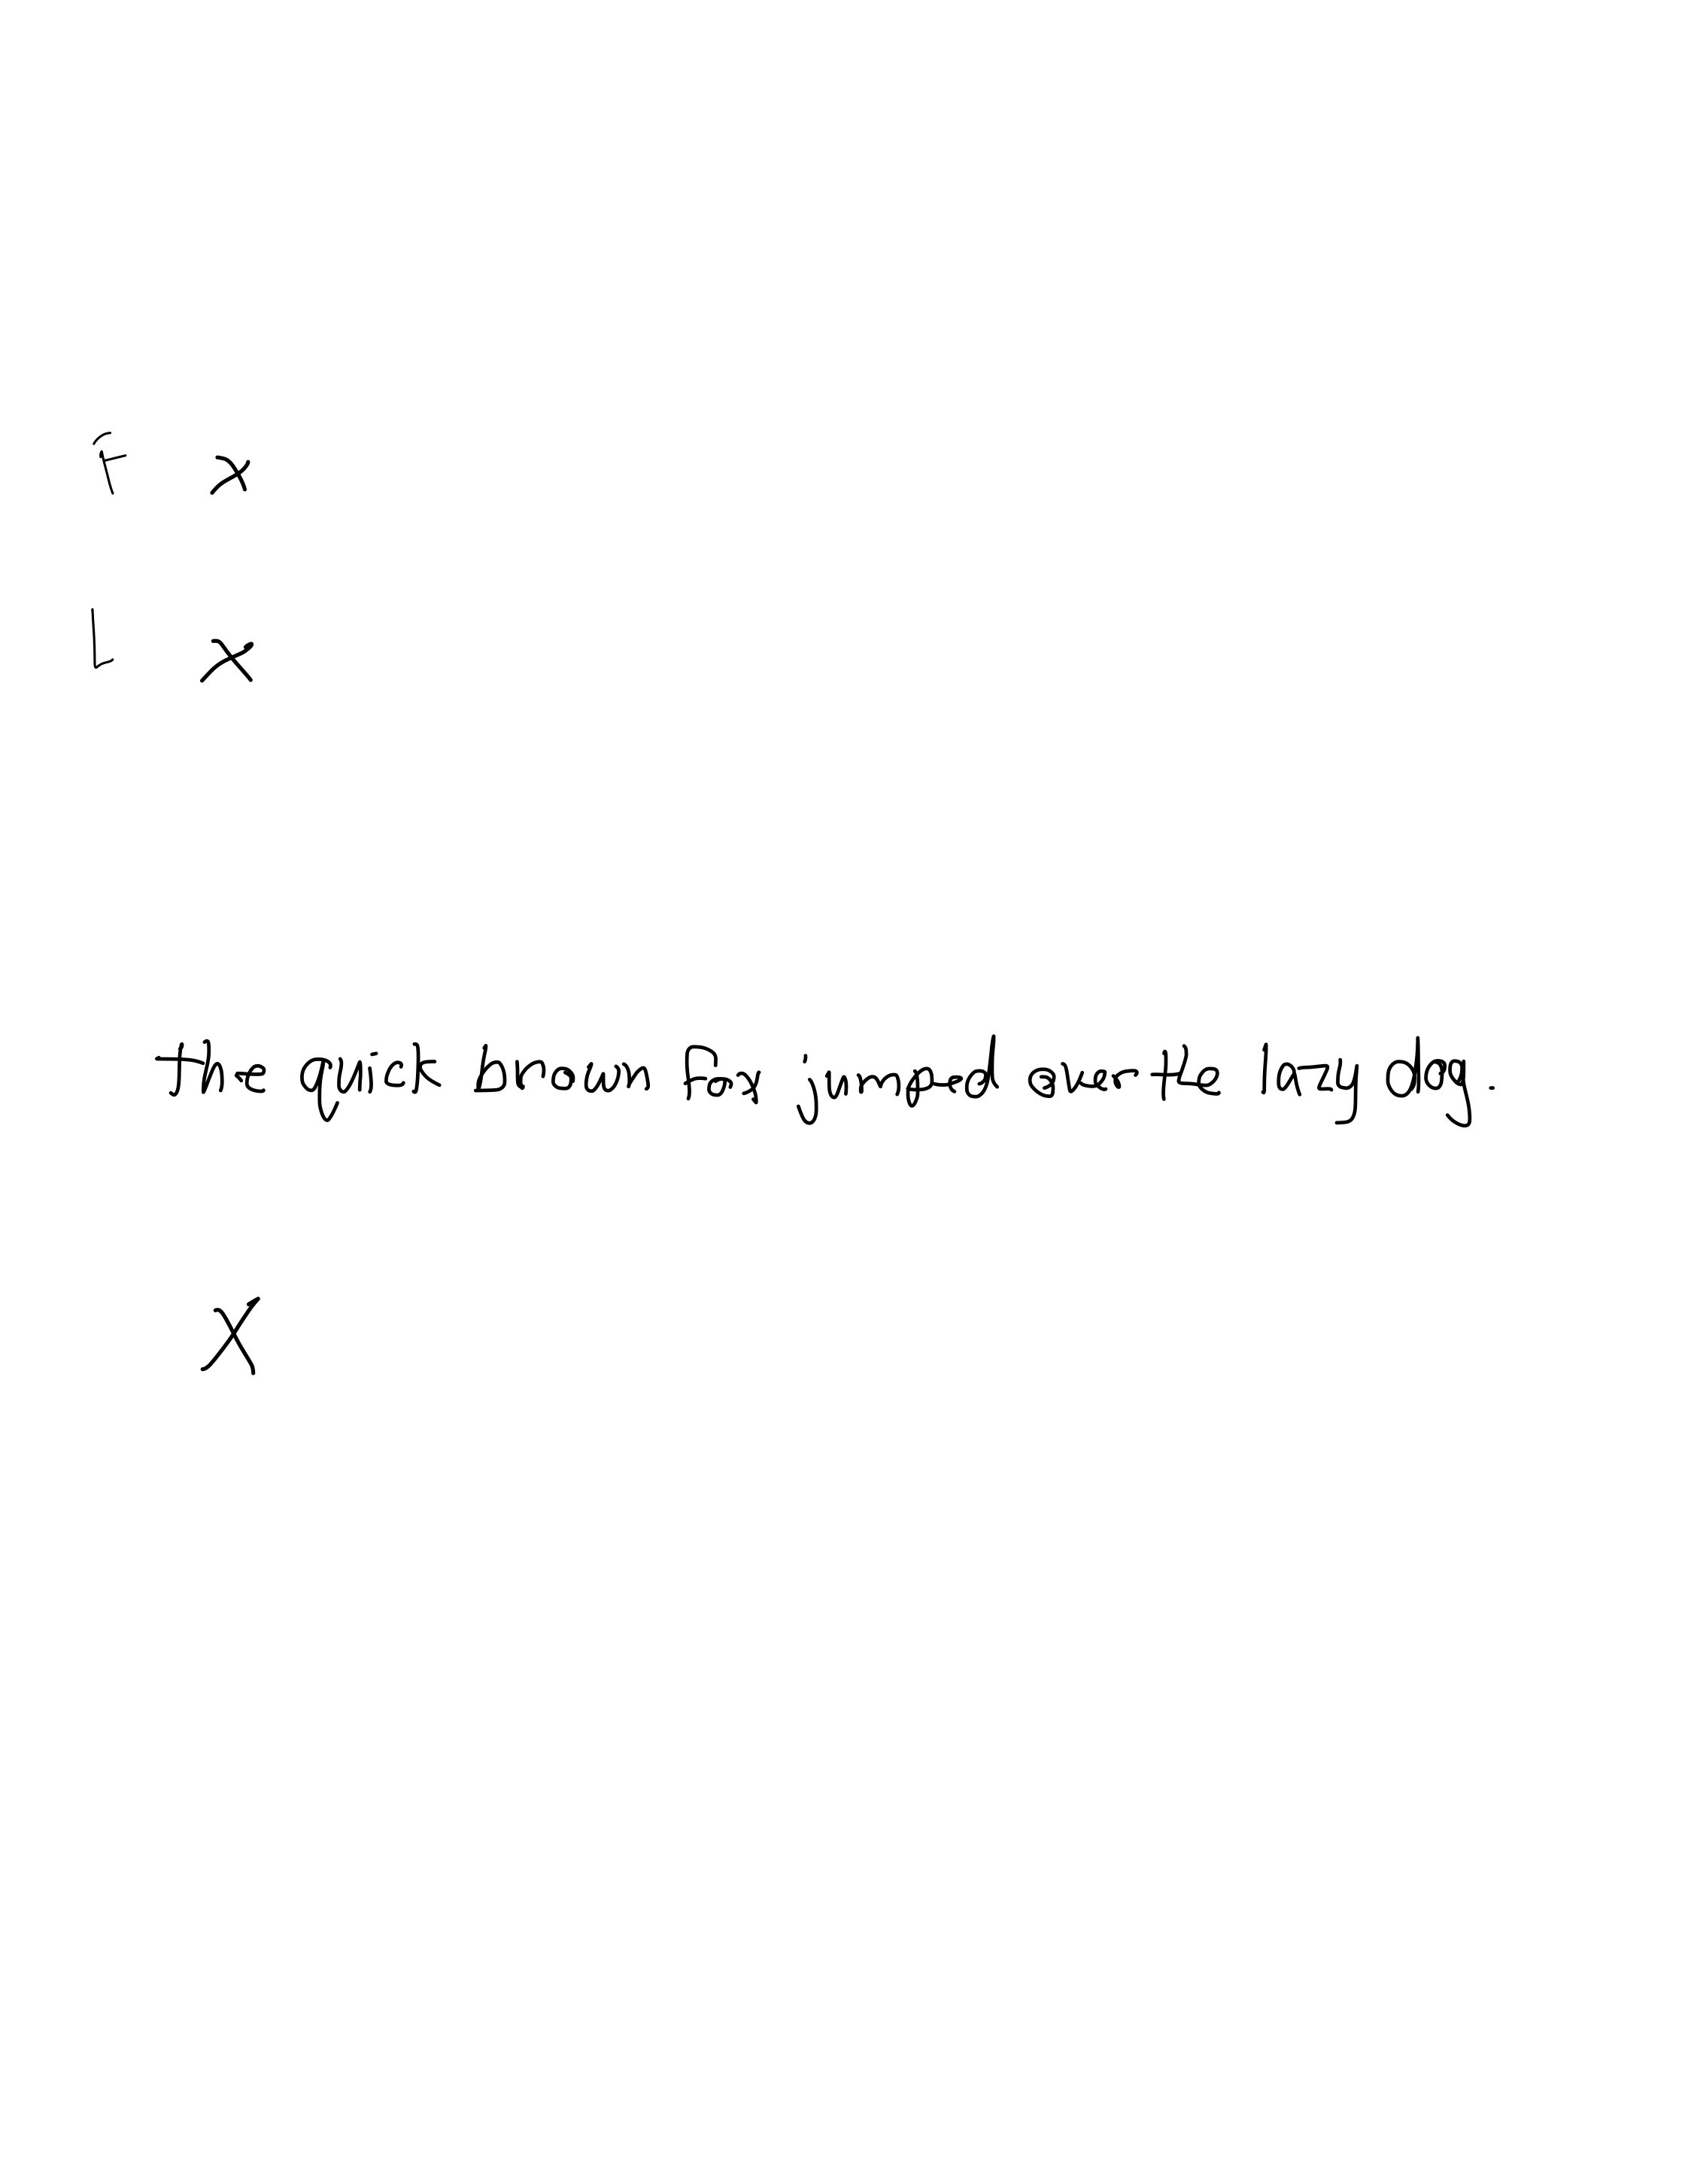 F x
L x
the quick brown fox jumped over the lazy dog.
X